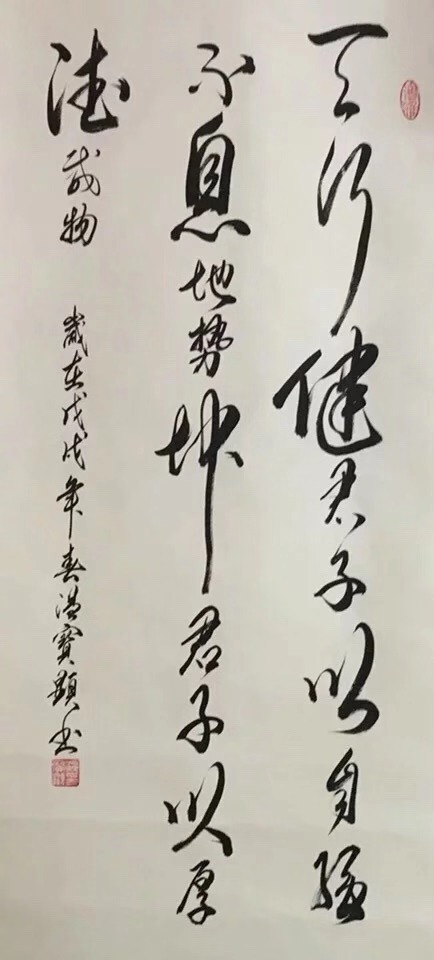 天行健君子以自强
不息地势坤君子以厚
德载物
岁在戊戌年春温宝显书